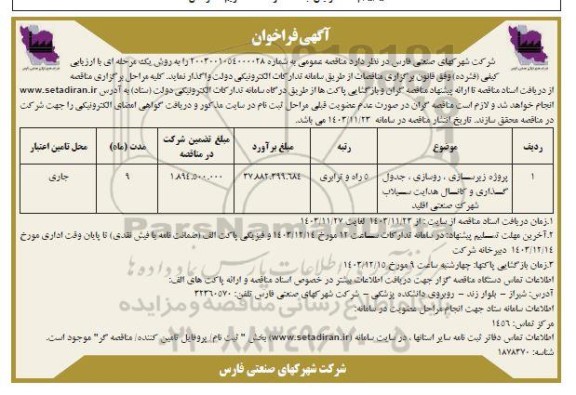 آگهی فراخوان
شرکت شهرکهای صنعتی فارس در نظر دارد مناقصه عمومی به شماره ۲۰۰۳۰۰۱۰۵۴۰۰۰۰۲۸ را به روش یک مرحله ای با ارزیابی
کیفی (فشرده) وفق قانون برگزاری مناقصات از طریق سامانه تدارکات الکترونیکی دولت واگذار نماید. کلیه مراحل برگزاری مناقصه
از دریافت اسناد مناقصه تا ارائه پیشنهاد مناقصه گران و بازگشایی پاکت ها از طریق درگاه سامانه تدارکات الکترونیکی دولت (ستاد) به آدرس www.setadiran.ir
انجام خواهد شد و لازم است مناقصه گران در صورت عدم عضویت قبلی مراحل ثبت نام در سایت مذکور و دریافت گواهی امضای الکترونیکی را جهت شرکت
در مناقصه محقق سازند. تاریخ انتشار مناقصه در سامانه ۱۴۰۳/۱۱/۲۳ می باشد.
ردیف موضوع رتبه مبلغ برآورد مبلغ تضمین شرکت در مناقصه مدت (ماه) محل تامین اعتبار
۱ پروژه زیرسازی ، روسازی ، جدول گذاری و کانال هدایت سیلاب شهرک صنعتی اقلید ۵ راه و ترابری ۳۷.۸۸۲.۳۹۹.۶۸۴ ۱.۸۹۴.۵۰۰.۰۰۰ ۹ جاری
۱.زمان دریافت اسناد مناقصه از سایت : از ۱۴۰۳/۱۱/۲۳ لغایت ۱۴۰۳/۱۱/۲۷
۲.آخرین مهلت تسلیم پیشنهاد: در سامانه تدارکات ساعت ۱۲ مورخ ۱۴۰۳/۱۲/۱۴ و فیزیکی پاکت الف (ضمانت نامه یا فیش نقدی) تا پایان وقت اداری مورخ
۱۴۰۳/۱۲/۱۴ دبیرخانه شرکت
۳.زمان بازگشایی پاکتها: چهارشنبه ساعت ۹ مورخ ۱۴۰۳/۱۲/۱۵
اطلاعات تماس دستگاه مناقصه گزار جهت دریافت اطلاعات بیشتر در خصوص اسناد مناقصه و ارائه پاکت های الف:
آدرس: شیراز – بلوار زند – روبروی دانشکده پزشکی – شرکت شهرکهای صنعتی فارس تلفن: ۳۲۳۰۵۷۰
اطلاعات سامانه ستاد جهت انجام مراحل عضویت در سامانه:
مرکز تماس: ۱۴۵۶
اطلاعات تماس دفاتر ثبت نامه سایر استانها ، در سایت سامانه (www.setadiran.ir) بخش " ثبت نام/ پروفایل تامین کننده/ مناقصه گر" موجود است.
شناسه: ۱۸۷۸۳۷۰
شرکت شهرکهای صنعتی فارس